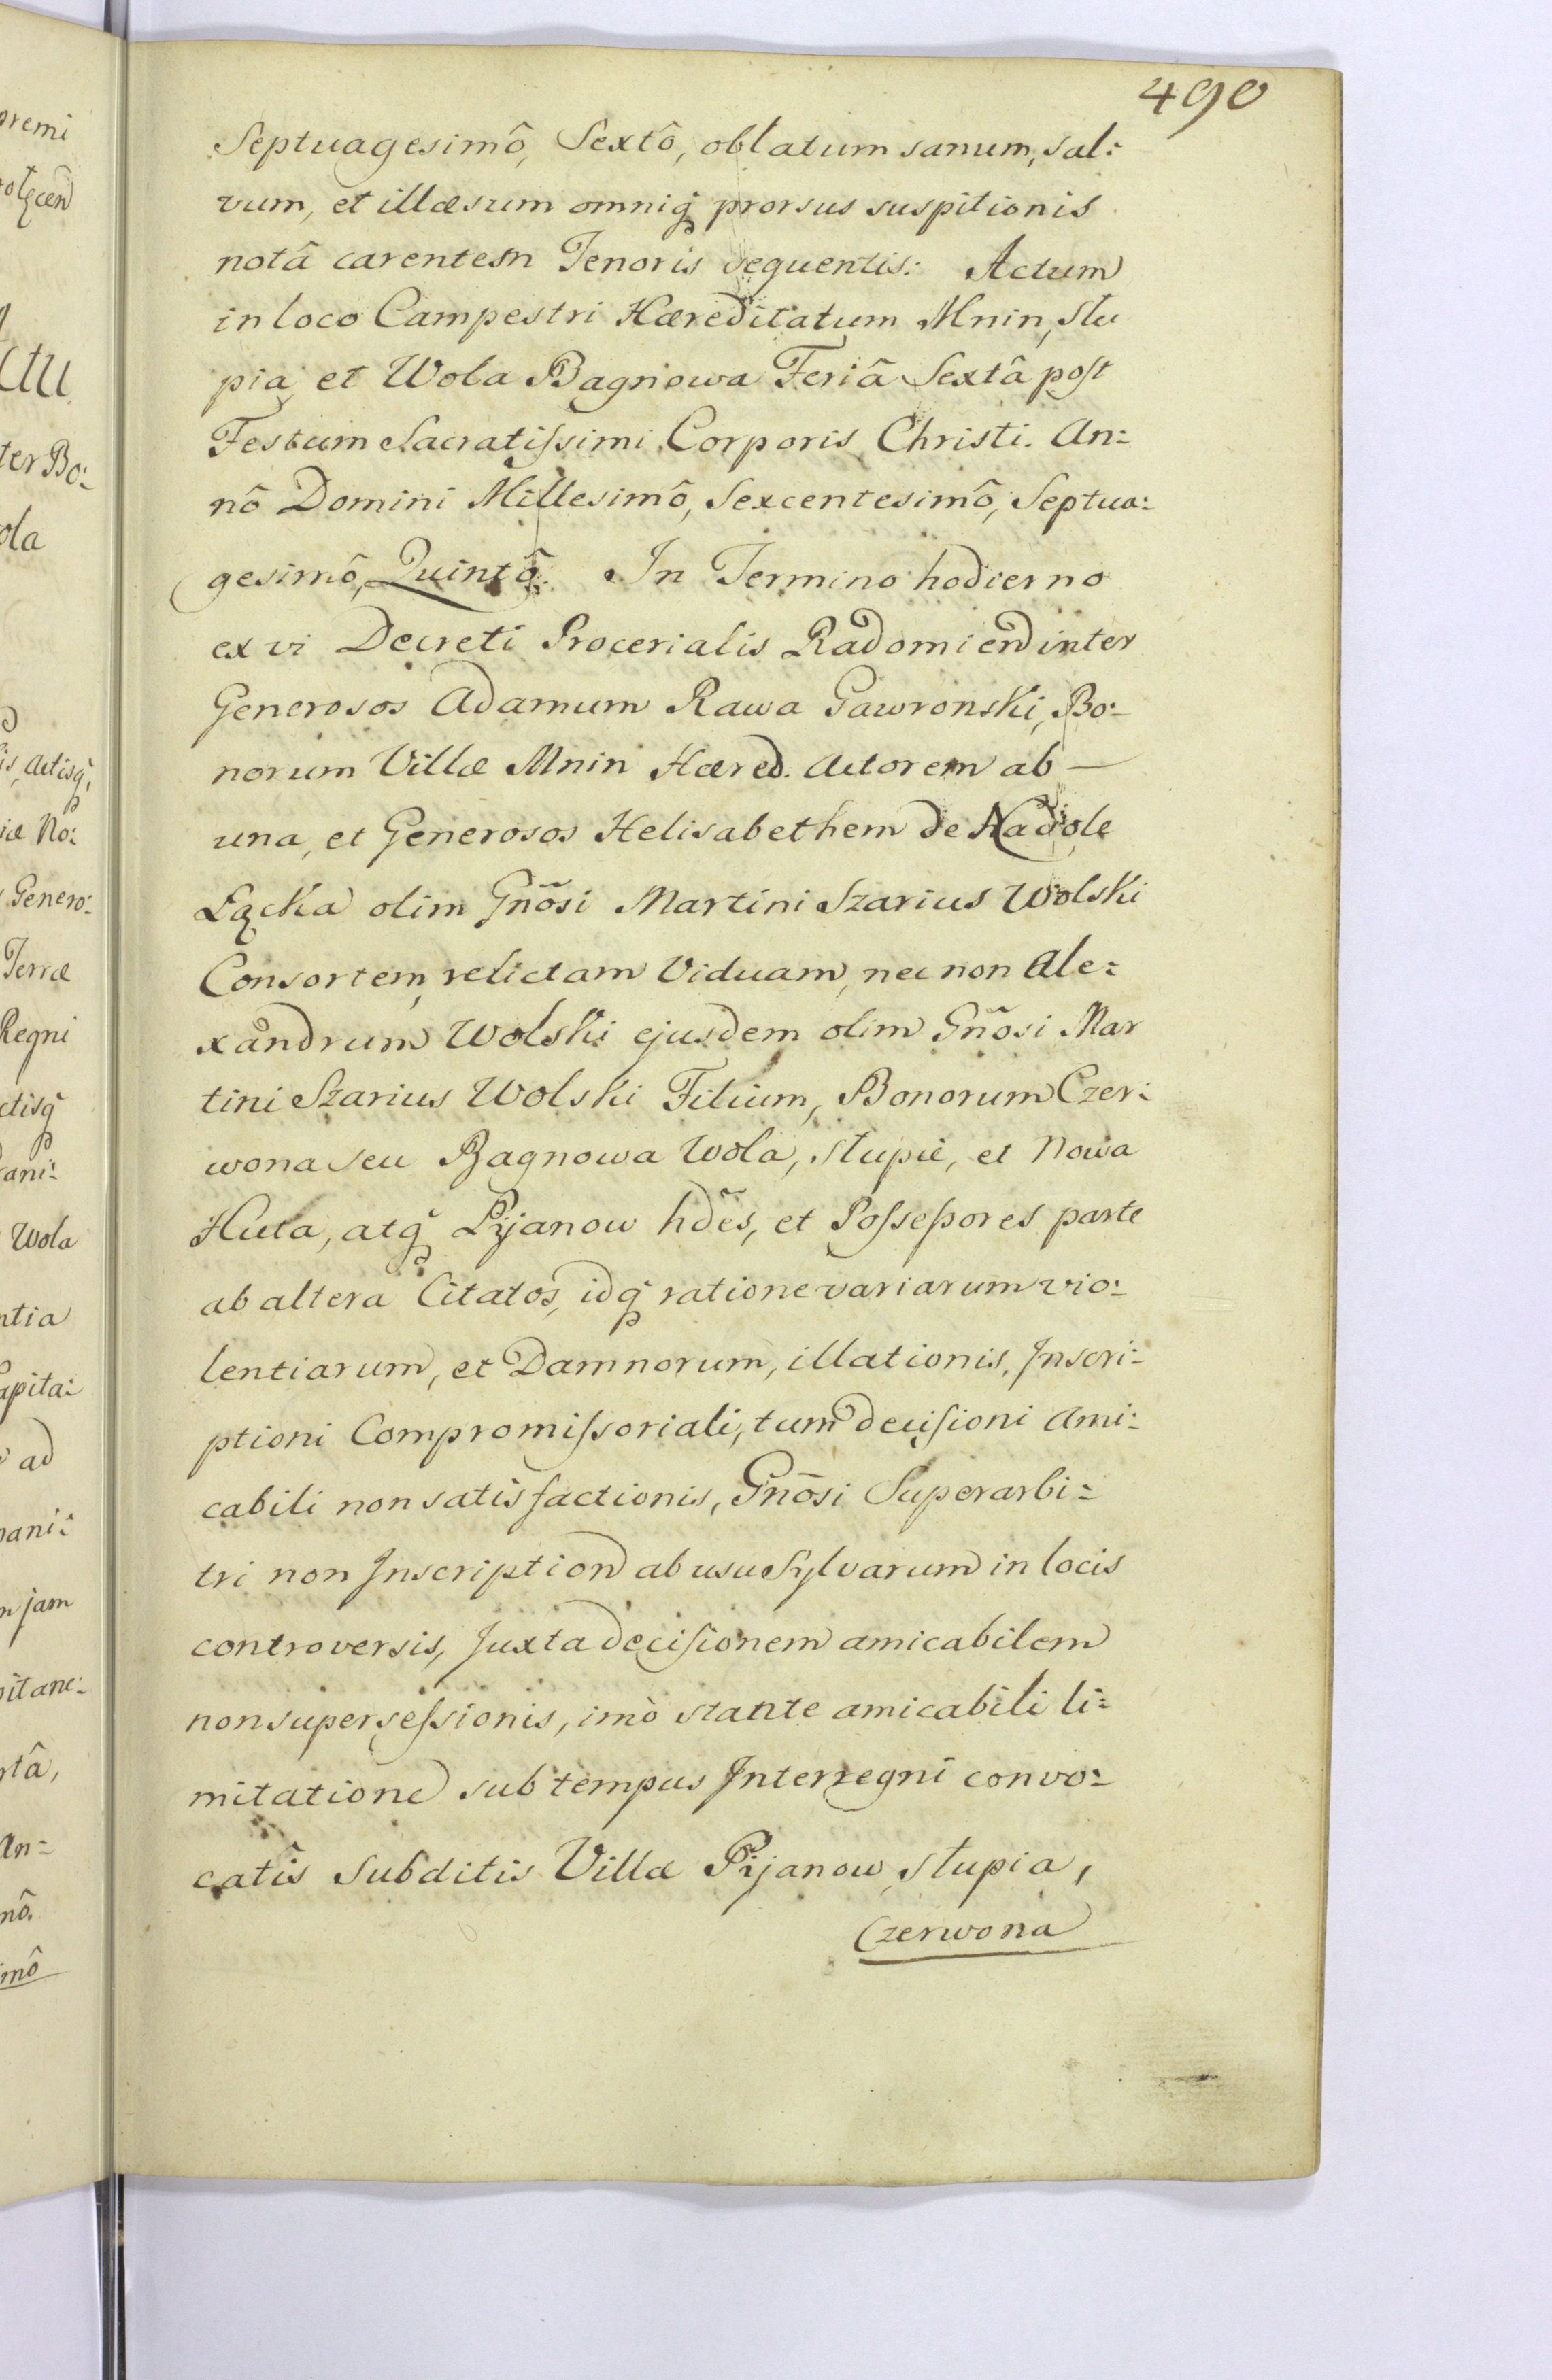 490
Septuagesimô, Sextô, oblatum sanum, sal:
vum, et illæsum omniq prorsus suspitionis
notâ carentem Tenoris sequentis: Actum
in loco Campestri Hæreditatum Mnin, Słu
pia et Wola Bagnowa Feriâ Sextâ post
Festum Sacratissimi Corporis Christi. An:
nô Domini Millesimô, Sexcentesimô, Septua:
gesimô, Quintô. In Termino hodierno
ex vi Decreti Procerialis Radomien inter
Generosos Adamum Rawa Gawronski, Bo:
norum Villæ Mnin Hæred. Actorem ab —
una, et Generosos Helisabethem de Nadole
Łącka olim Gnõsi Martini Szarius Wolski
Consortem, relictam Viduam, nec non Ale:
xandrum Wolski ejusdem olim Gnõsi Mar
tini Szarius Wolski Filium, Bonorum Czer:
wona seu Bagnowa Wola, Słupie, et Nowa
Huta, atq Pijanow hdẽs, et Possessores parte
ab altera Citatos, idq ratione variarum vio:
lentiarum, et Damnorum, illationis, Inscri:
ptioni Compromissoriali, tum decisioni Ami:
cabili non satisfactionis, Gnõsi Superarbi:
tri non Inscription ab usu Sylvarum in locis
controversis, Juxta decisionem amicabilem
non supersessionis, imò stante amicabili li:
mitatione sub tempus Interregni convo:
catis Subditis Villæ Pijanow, Słupia,
Czerwona
premi
ctu
ter Bo:
ola
is, Actisq,
iæ No:
Genero:
Terræ
Regni
ctisq
rani:
Wola
ntia
apita:
ad
nani:
m jam
pitane:
rtâ,
An:
nô.
imô